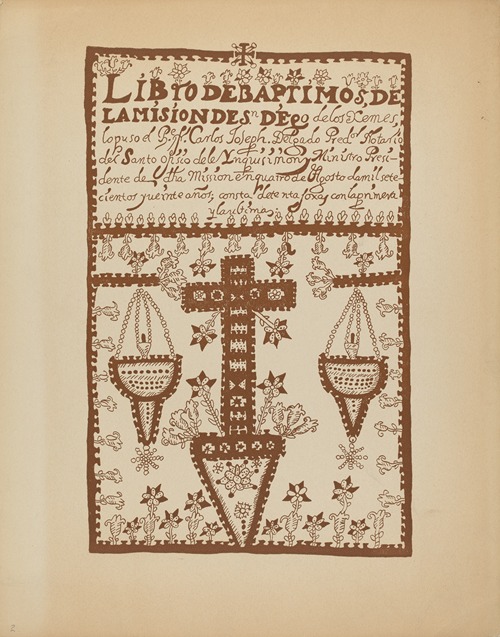 LIBRO DE BAPTIMOS, DE
LA MISION DE Sn. DIEGO de los Xemes,
lo puso el R. P. fr. Carlos Joseph. Delgado Predor. Notario
del Santo ofisio de le Ynquisirion, Ministro Presi-
dente de dha Mission en quatro de Agosto de mil sete-
cientos y veinte años; consta de foxas con la primera
y la ultima
2